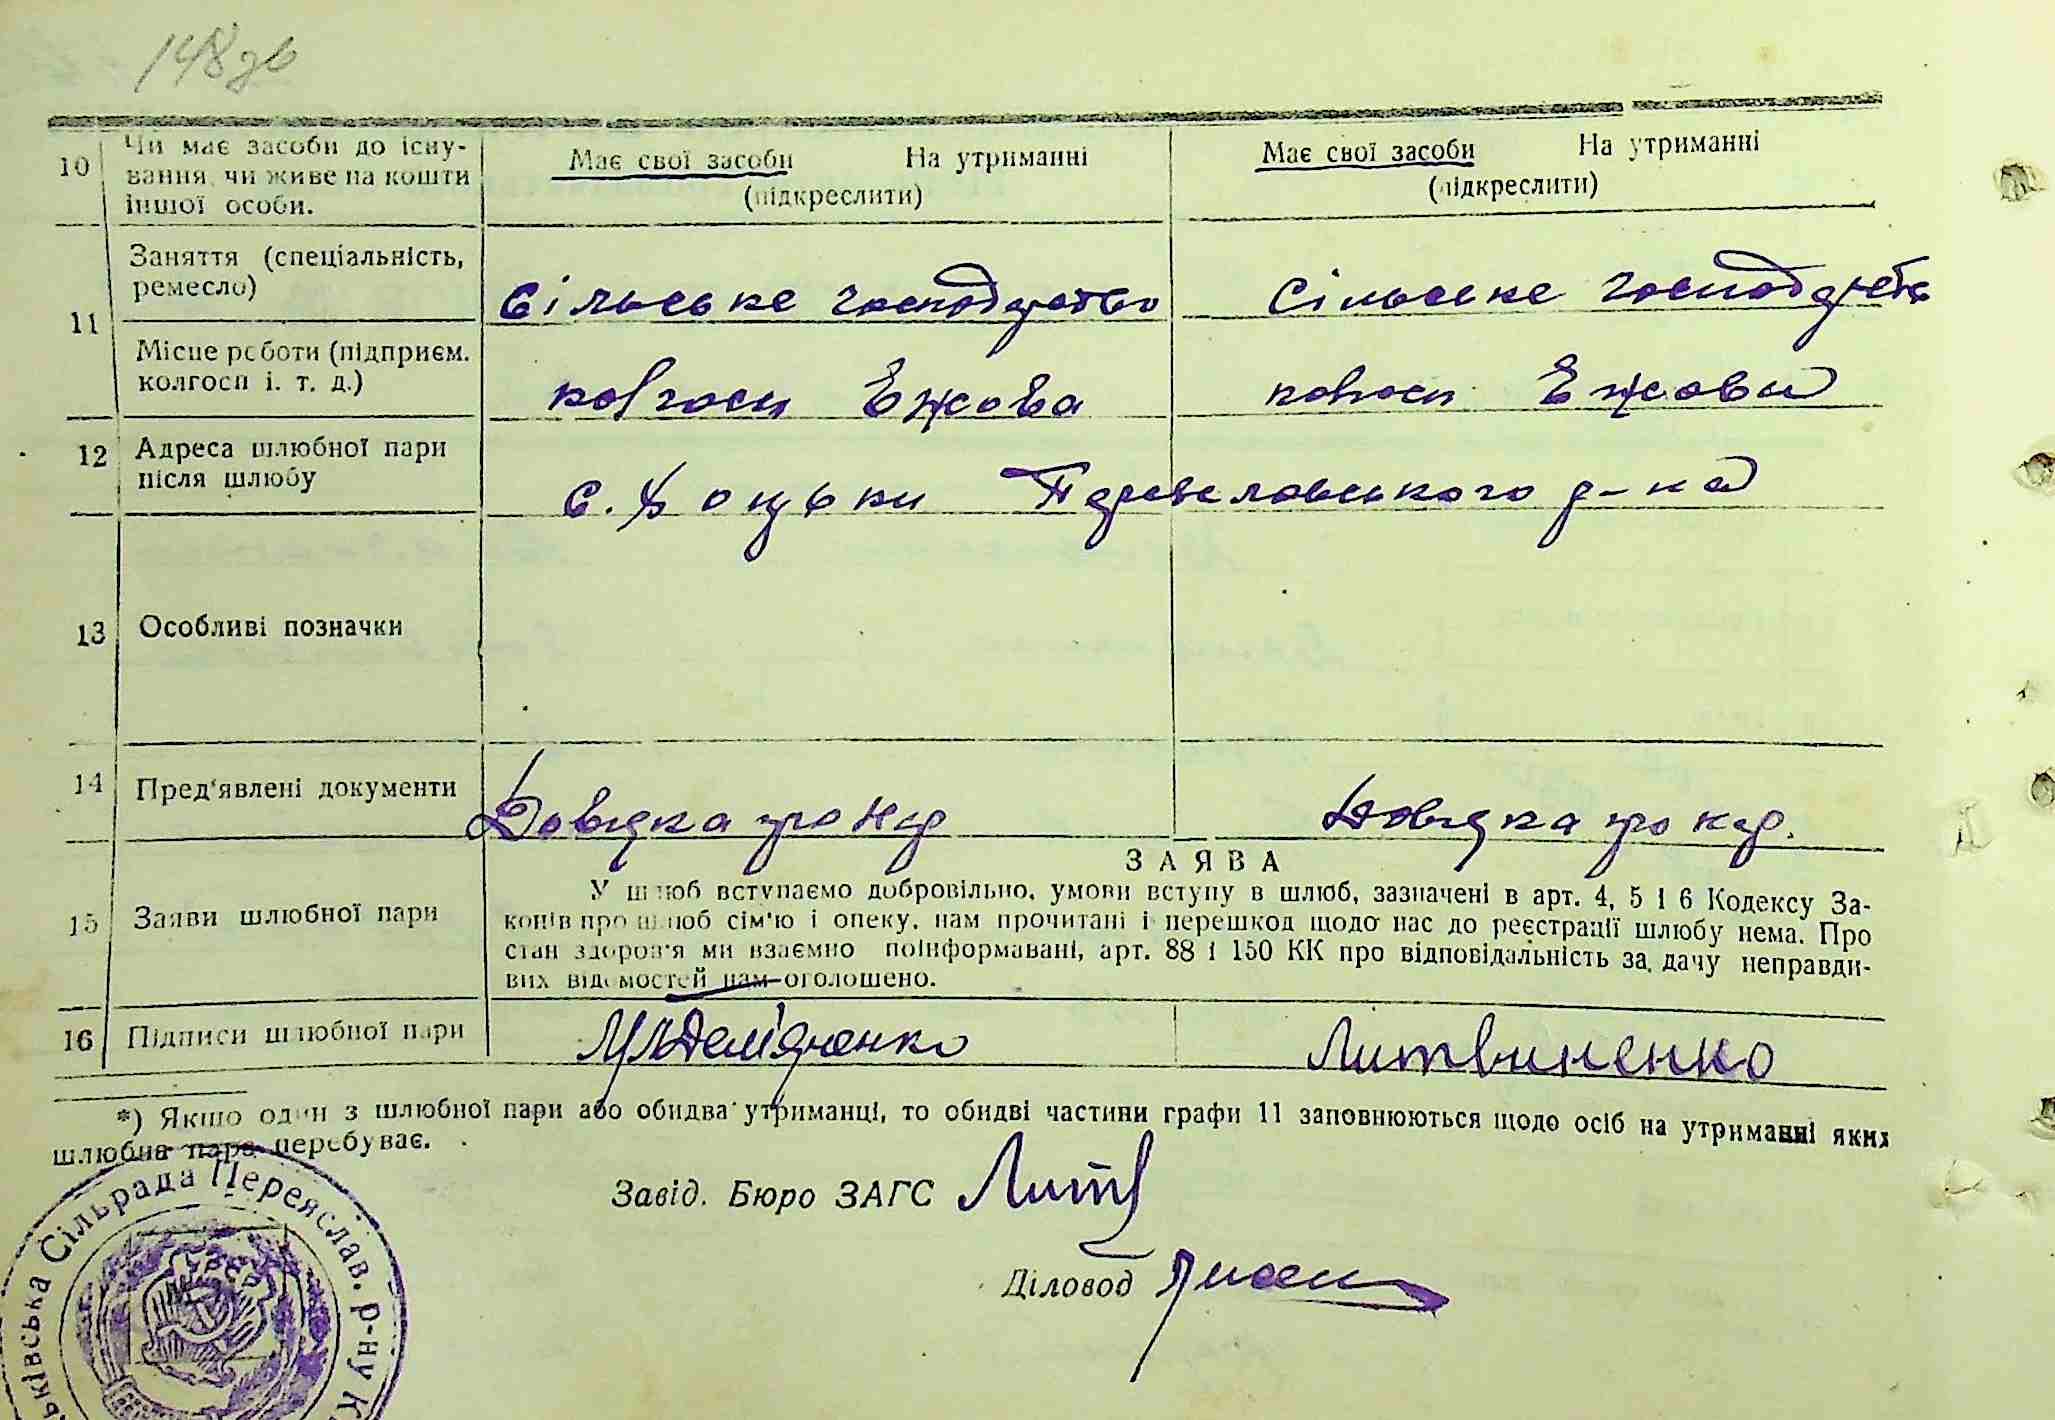 148зв
10 Чи має засоби до існу-
вання, чи живе на кошти
іншої особи.
Має свої засоби На утриманні
(підкреслити)
Має свої засоби На утриманні
(підкреслити)
11 Заняття (спеціальність,
ремесло)
Сільське господарство
Сільське господарств
Місце роботи (підприєм.
колгосп і. т. д.)
колгосп Єжова
колгосп Єжова
12 Адреса шлюбної пари
після шлюбу
с. Хоцьки Переяславського р-на
13 Особливі позначки
14 Пред'явлені документи
Довідка про нар
Довідка про нар.
15 Заяви шлюбної пари
ЗАЯВА
У шлюб вступаємо добровільно, умови вступу в шлюб, зазначені в арт. 4, 5 і 6 Кодексу За-
конів про шлюб сім'ю і опеку, нам прочитані і перешкод щодо нас до реєстрації шлюбу нема. Про
стан здоров'я ми взаємно поінформавані, арт. 88 і 150 КК про відповідальність за дачу неправди-
вих відомостей нам оголошено.
16 Підписи шлюбної пари
Дем'яненко
Литвиненко
*) Якщо один з шлюбної пари або обидва утриманці, то обидві частини графи 11 заповнюються щодо осіб на утриманні яких
шлюбна пара перебуває.
Завід. Бюро ЗАГС Литв
Діловод
ьківська Сільрада Переяслав. р-ну К